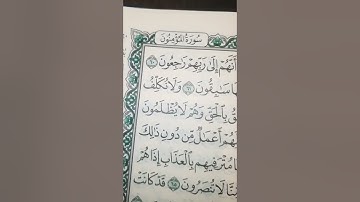 سُورَةُ الْمُؤْمِنُونَ
أَنَّهُمْ إِلَىٰ رَبِّهِمْ رَاجِعُونَ ٦٠
سَابِقُونَ ٦١ وَلَا نُكَلِّفُ
بِالْحَقِّ وَهُمْ لَا يُظْلَمُونَ
أَعْمَالٌ مِّن دُونِ ذَٰلِكَ
مُتْرَفِيهِم بِالْعَذَابِ إِذَا هُمْ
لَا تُنصَرُونَ ٦٥ قَدْ كَانَتْ